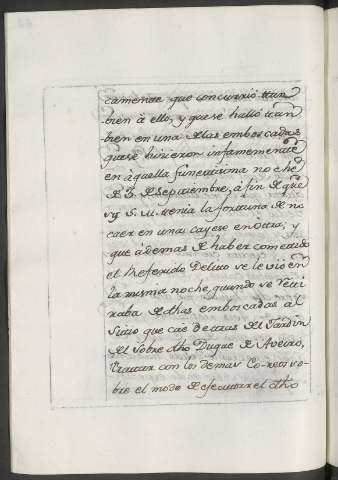 camente que concurrió tam
bien à ello, y que se halló tam
bien en una de las emboscadas
que se hicieron infamemente
en àquella funestissima noche
de 3 de Septiembre, à fin de que
si S. M. tenia la fortuna de no
caer en unas cayese en otras; y
que àdemas de haber cometido
el Referido Delito se le vió en
la misma noche, quando se reti
raba de dhas emboscadas al
Sitio que cae detras del Jardin
del Sobre dho Duque de Aveiro,
tratar con los demas Co-reos so-
bre el modo de executar el dho